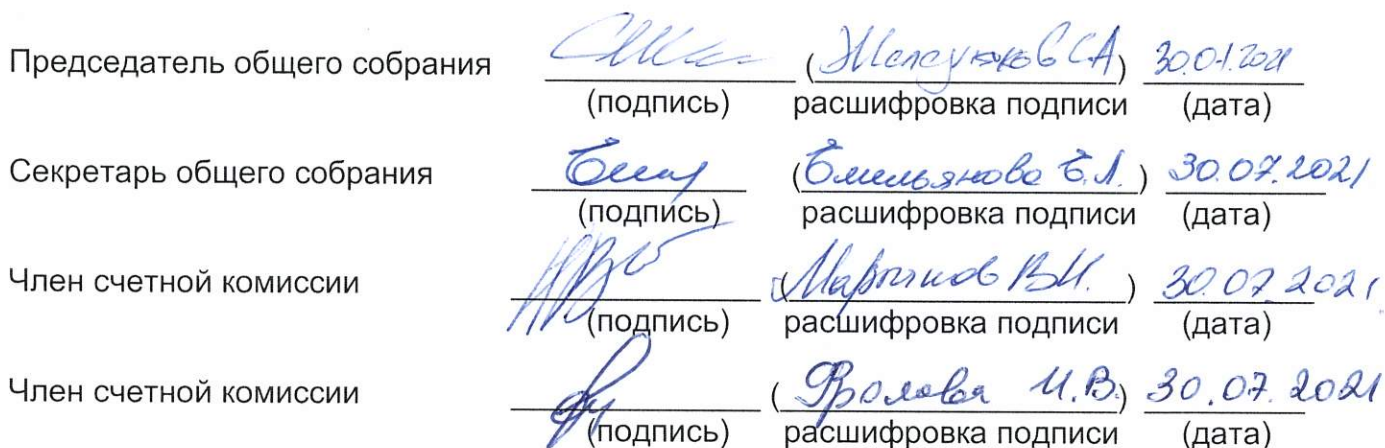 Председатель общего собрания ( С А) 30.07.2021
(подпись) расшифровка подписи (дата)
Секретарь общего собрания (Емельянова Е.Л.) 30.07.2021
(подпись) расшифровка подписи (дата)
Член счетной комиссии (Мартынов В.И.) 30.07.2021
(подпись) расшифровка подписи (дата)
Член счетной комиссии (Фролова И.В.) 30.07.2021
(подпись) расшифровка подписи (дата)